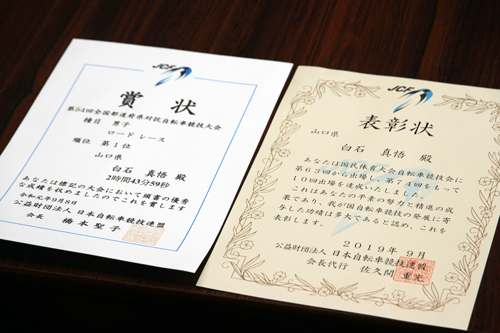 JCF
賞状
第54回全国都道府県対抗自転車競技大会
種目 男子
ロード レース
順位 第1位
山口県
白石 真悟 殿
2時間43分59秒
あなたは標記の大会において頭書の優秀
な成績を収めましたのでこれを賞します
令和元年9月8日
公益財団法人 日本自転車競技連盟
会長 橋本聖子
JCF
表彰状
山口県
白石 真悟 殿
あなたは国民体育大会自転車競技会に
第63回から出場し、第74回をもって
10回出場を達成いたしました。
これはあなたの平素の努力と精進の成
果であり、我が国自転車競技の発展に寄
与した功績は多大であると認め、これを
表彰します。
2019年9月
公益財団法人 日本自転車競技連盟
会長代行 佐久間 重光